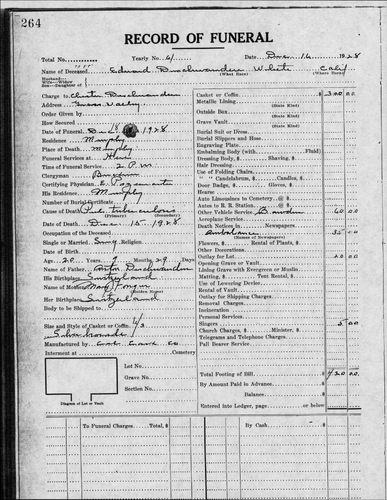 264
RECORD OF FUNERAL
Total No. Yearly No. 41 Date Dec 16 1928
Name of Deceased Edward White Calif
(What Race) (Where Born)
Husband—
Wife—Widow
Son—Daughter of
Charge to
Address
Order Given by
How Secured
Date of Funeral Dec 18 1928
Residence Murphy
Place of Death Murphy
Funeral Services at
Time of Funeral Services 2 P.M.
Clergyman
Certifying Physician
His Residence Murphy
Number of Burial Certificate
Cause of Death tuberculosis
(Primary) (Secondary)
Date of Death Dec. 15, 1928
Occupation of the Deceased
Single or Married Religion
Age 20 Years 9 Months 29 Days
Name of Father Anton
His Birthplace Switzerland
Name of Mother Mary
(Maiden Name)
Her Birthplace Switzerland
Body to be Shipped to
Size and Style of Casket or Coffin 6/3
Manufactured by
Interment at Cemetery
Lot No.
Grave No.
Section No.
Diagram of Lot or Vault
Casket or Coffin $ 300 00
Metallic Lining
(State Kind)
Outside Box
(State Kind)
Grave Vault
(State Kind)
Burial Suit or Dress
Burial Slippers and Hose
Engraving Plate
Embalming Body (with Fluid)
Dressing Body, $ Shaving, $
Hair Dressing
Use of Folding Chairs
" " Candelabrum, $ Candles, $
Door Badge, $ Gloves, $
Hearse
Auto Limousines to Cemetery @ $
Autos to R. R. Station @ $
Other Vehicle Service 60 00
Aeroplane Service
Death Notices in Newspapers
Ambulance 35 00
(Names of Newspapers)
Flowers, $ Rental of Plants, $
Other Decorations
Outlay for Lot 20 00
Lining Grave with Evergreen or Muslin
Matting, $ Tent Rental, $
Use of Lowering Device
Rental of Vault
Outlay for Shipping Charges
Removal Charges
Incineration
Personal Services
Singers 5 00
Church Charges, $ Minister, $
Telegrams and Telephone Charges
Pall Bearer Service
Total Footing of Bill $ 420 00
By Amount Paid in Advance
Balance $
Entered into Ledger, page or below
To Funeral Charges Total, $
By Cash $